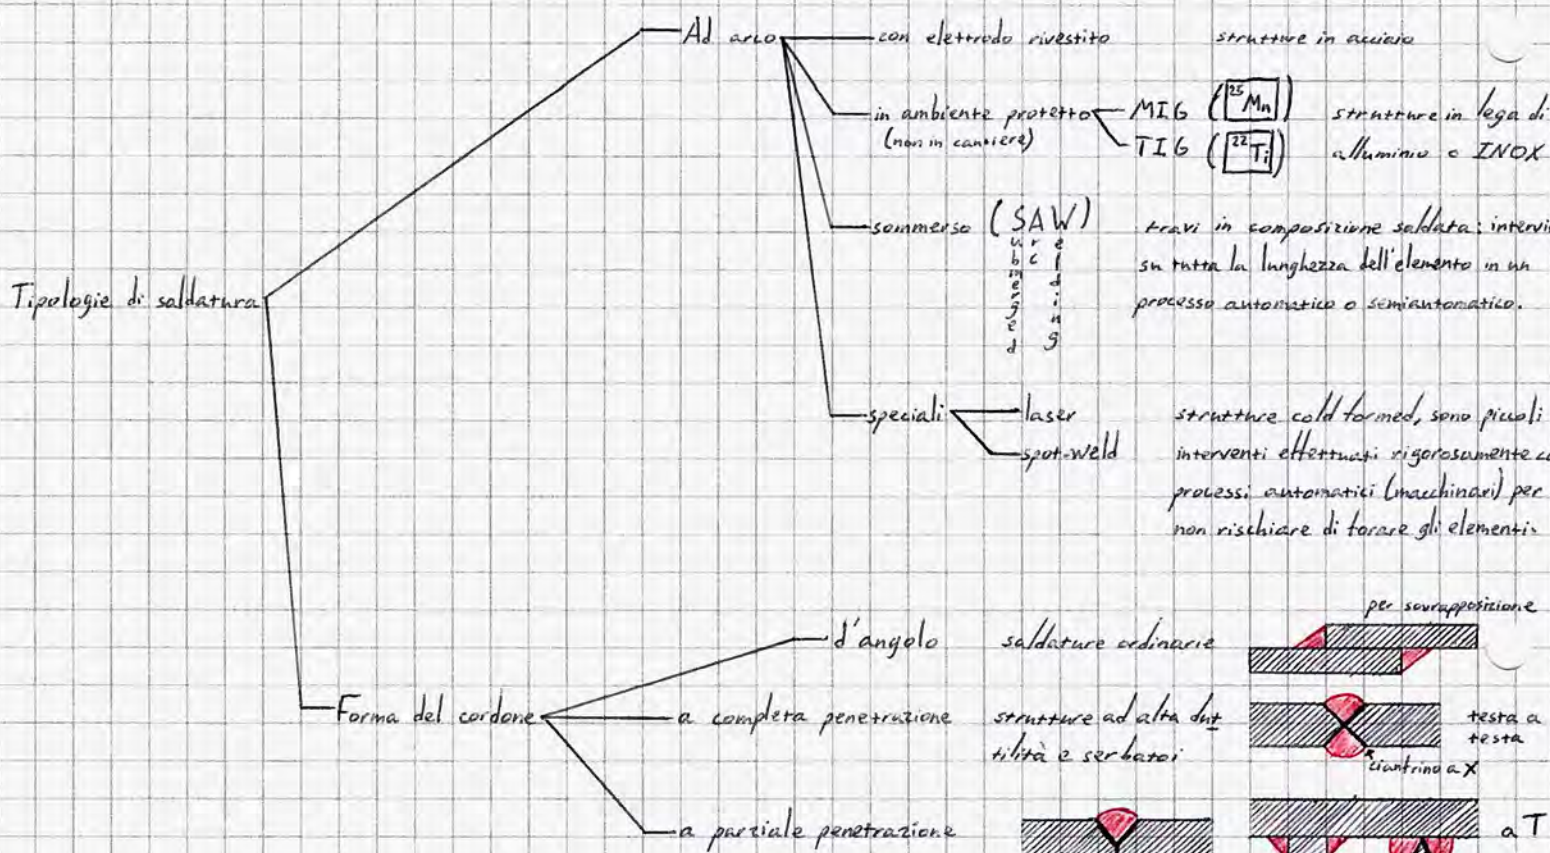 Tipologie di saldatura
Ad arco
con elettrodo rivestito
strutture in acciaio
in ambiente protetto
(non in cantiere)
MIG (²⁵Mn)
TIG (²²Ti)
strutture in lega di
alluminio o INOX
sommerso (SAW)
Submerged Arc Welding
travi in composizione saldata: intervi
su tutta la lunghezza dell'elemento in un
processo automatico o semiautomatico.
speciali
laser
spot-weld
strutture cold formed, sono piccoli
interventi effettuati rigorosamente co
processi automatici (macchinari) per
non rischiare di forare gli elementi.
Forma del cordone
d'angolo
saldature ordinarie
per sovrapposizione
a completa penetrazione
strutture ad alta dut
tilità e serbatoi
testa a
testa
ciantrino a X
a parziale penetrazione
a T